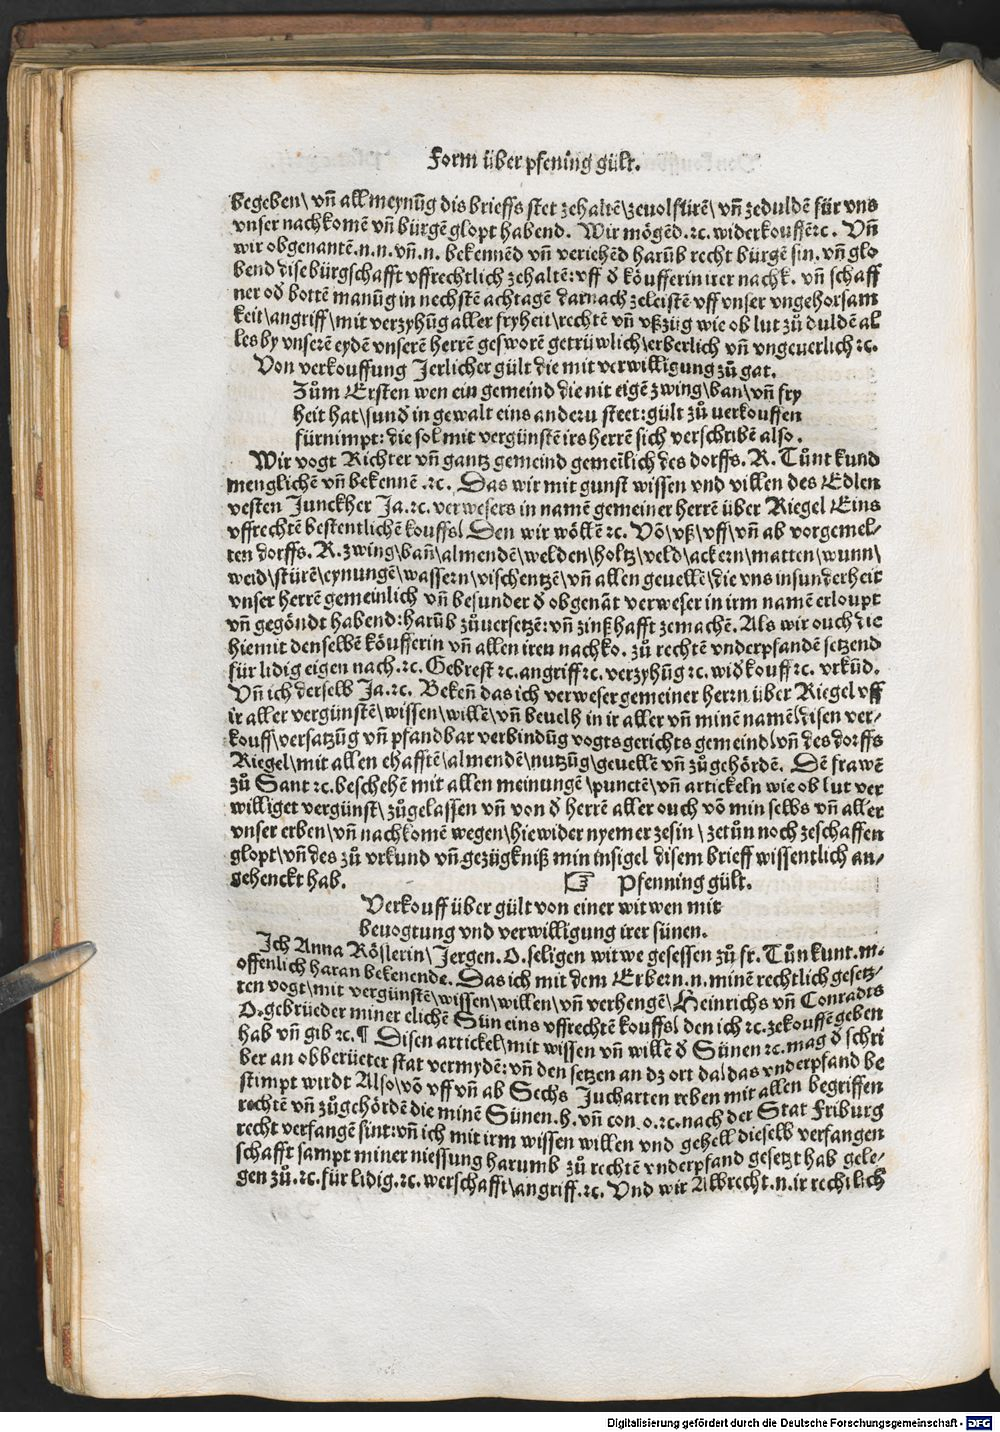 Form über pfening gült.
begeben\ vñ all meynũg dis brieffs stet zehaltẽ\ zeuolfürẽ\ vñ zeduldẽ für vns
vnser nachkomẽ vñ bürgẽ glopt habend. Wir mögẽd. ⁊c. widerkouffẽ⁊c. Vñ
wir obgenantẽ.n.n.vñ.n. bekennẽd vñ veriehẽd harũb recht bürgẽ sin. vñ glo
bend dise bürgschafft vffrechtlich zehaltẽ: vff d̕ köufferin irer nachk. vñ schaff
ner od̕ bottẽ manũg in nechstẽ achtagẽ darnach zeleistẽ vff vnser vngehorsam
keit\ angriff\ mit verzyhũg aller fryheit\ rechtẽ vñ vßzüg wie ob lut zů duldẽ al
les by vnserẽ eydẽ vnserẽ herrẽ gesworẽ getrüwlich\ erberlich vñ vngeuerlich ⁊c.
Von verkouffung Jerlicher gült die mit verwilligung zů gat.
Zům Ersten wen ein gemeind die nit eigẽ zwing\ ban\ vñ fry
heit hat\ sund̕ in gewalt eins anderu steet: gült zů uerkouffen
fürnimpt: die sol mit vergünstẽ irs herrẽ sich verschribẽ also.
Wir vogt Richter vñ gantz gemeind gemeĩlich des dorffs. R. Tůnt kund
menglichẽ vñ bekennẽ .⁊c. Das wir mit gunst wissen vnd villen des Edlen
vesten Junckher Ja.⁊c. verwesers in namẽ gemeiner herrẽ über Riegel Eins
vffrechtẽ bestentlichẽ kouffs\ Den wir wöllẽ ⁊c. Võ\ vß\ vff\ vñ ab vorgemel-
ten dorffs. R. zwing\ bañ\ almendẽ\ welden\ holtz\ veld\ ackern\ matten\ wunn\
weid\ stürẽ\ eynungẽ\ wassern\ vischentzẽ\ vñ allen geuellẽ\ die vns insunderheit
vnser herrẽ gemeinlich vñ besunder d̕ obgenãt verweser in irm namẽ erloupt
vñ gegöndt habend: harũb zů versetzẽ: vñ zinßhafft zemachẽ. Als wir ouch die
hiemit denselbẽ köufferin vñ allen iren nachko. zů rechtẽ vnderpfandẽ setzend
für lidig eigen nach.⁊c. Gebrest ⁊c. angriff⁊c. verzyhũg ⁊c. wid̕kouff⁊c. vrkũd.
Vñ ich derselb Ja.⁊c. Bekeñ das ich verweser gemeiner herrn über Riegel vff
ir aller vergünstẽ\ wissen\ willẽ\ vñ beuelh in ir aller vñ minẽ namẽ\ disen ver-
kouff\ versatzũg vñ pfandbar verbindũg vogts gerichts gemeind\ vñ des dorffs
Riegel\ mit allen ehafftẽ\ almendẽ\ nutzũg\ geuellẽ vñ zůgehördẽ. Dẽ frawẽ
zů Sant ⁊c. beschehẽ mit allen meinungẽ\ punctẽ\ vñ artickeln wie ob lut ver
williget vergünst\ zůgelassen vñ von d̕ herrẽ aller ouch võ min selbs vñ aller
vnser erben\ vñ nachkomẽ wegen\ hie wider nyemer zesin\ zetůn noch zeschaffen
glopt\ vñ des zů vrkund vñ gezügkniß min insigel disem brieff wissentlich an-
gehenckt hab. ☞ Pfenning gült.
Verkouff über gült von einer witwen mit
beuogtung vnd verwilligung irer sünen.
Ich Anna Röslerin\ Jergen. O. seligen witwe gesessen zů fr. Tůn kunt. m.
offenlich haran bekenende. Das ich mit dem Erbern.n.n. minẽ rechtlich gesetz-
ten vogt\ mit vergünstẽ\ wissen\ willen\ vñ verhengẽ\ Heinrichs vñ Conradts
O. gebrüeder miner elichẽ Sün eins vffrechtẽ kouffs\ den ich ⁊c. zekouffẽ geben
hab vñ gib ⁊c. ¶ Disen artickel\ mit wissen vñ willẽ d̕ Sünen ⁊c. mag d̕ schri
ber an obberüeter stat vermydẽ: vñ den setzen an dz ort da\ das vnderpfand be
stimpt wirdt Also\ võ vff vñ ab Sechs Jucharten reben mit allen begriffen
rechtẽ vñ zůgehördẽ die minẽ Sünen. H. vñ con. o. ⁊c. nach der Stat Friburg
recht verfangẽ sint: vñ ich mit irm wissen willen vnd gehell dieselb verfangen
schafft sampt miner niessung harumb zů rechtẽ vnderpfand gesetzt hab gele-
gen zů.⁊c. für lidig.⁊c. werschafft\ angriff.⁊c. Vnd wir Albrecht.n. ir rechtlich
Digitalisierung gefördert durch die Deutsche Forschungsgemeinschaft - DFG